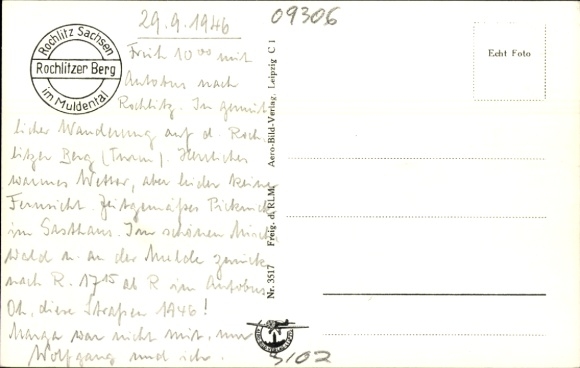 29.9.1946
09306
Rochlitz Sachsen
Rochlitzer Berg
im Muldental
Früh 10 00 mit
Autobus nach
Rochlitz. In gemüt
licher Wanderung auf d. Roch
litzer Berg (Turm). Herrliches
warmes Wetter, aber leider keine
Fernsicht. Zeitgemäßes Picknick
im Gasthaus. Im schönen Misch
wald u. an der Mulde zurück
nach R. 17 15 ab R im Autobus.
Oh, diese Straßen 1946!
Marga war nicht mit, nur
Wolfgang und ich.
Nr. 3517 Freig. d. RLM. Aero-Bild-Verlag, Leipzig C 1
Echt Foto
5102